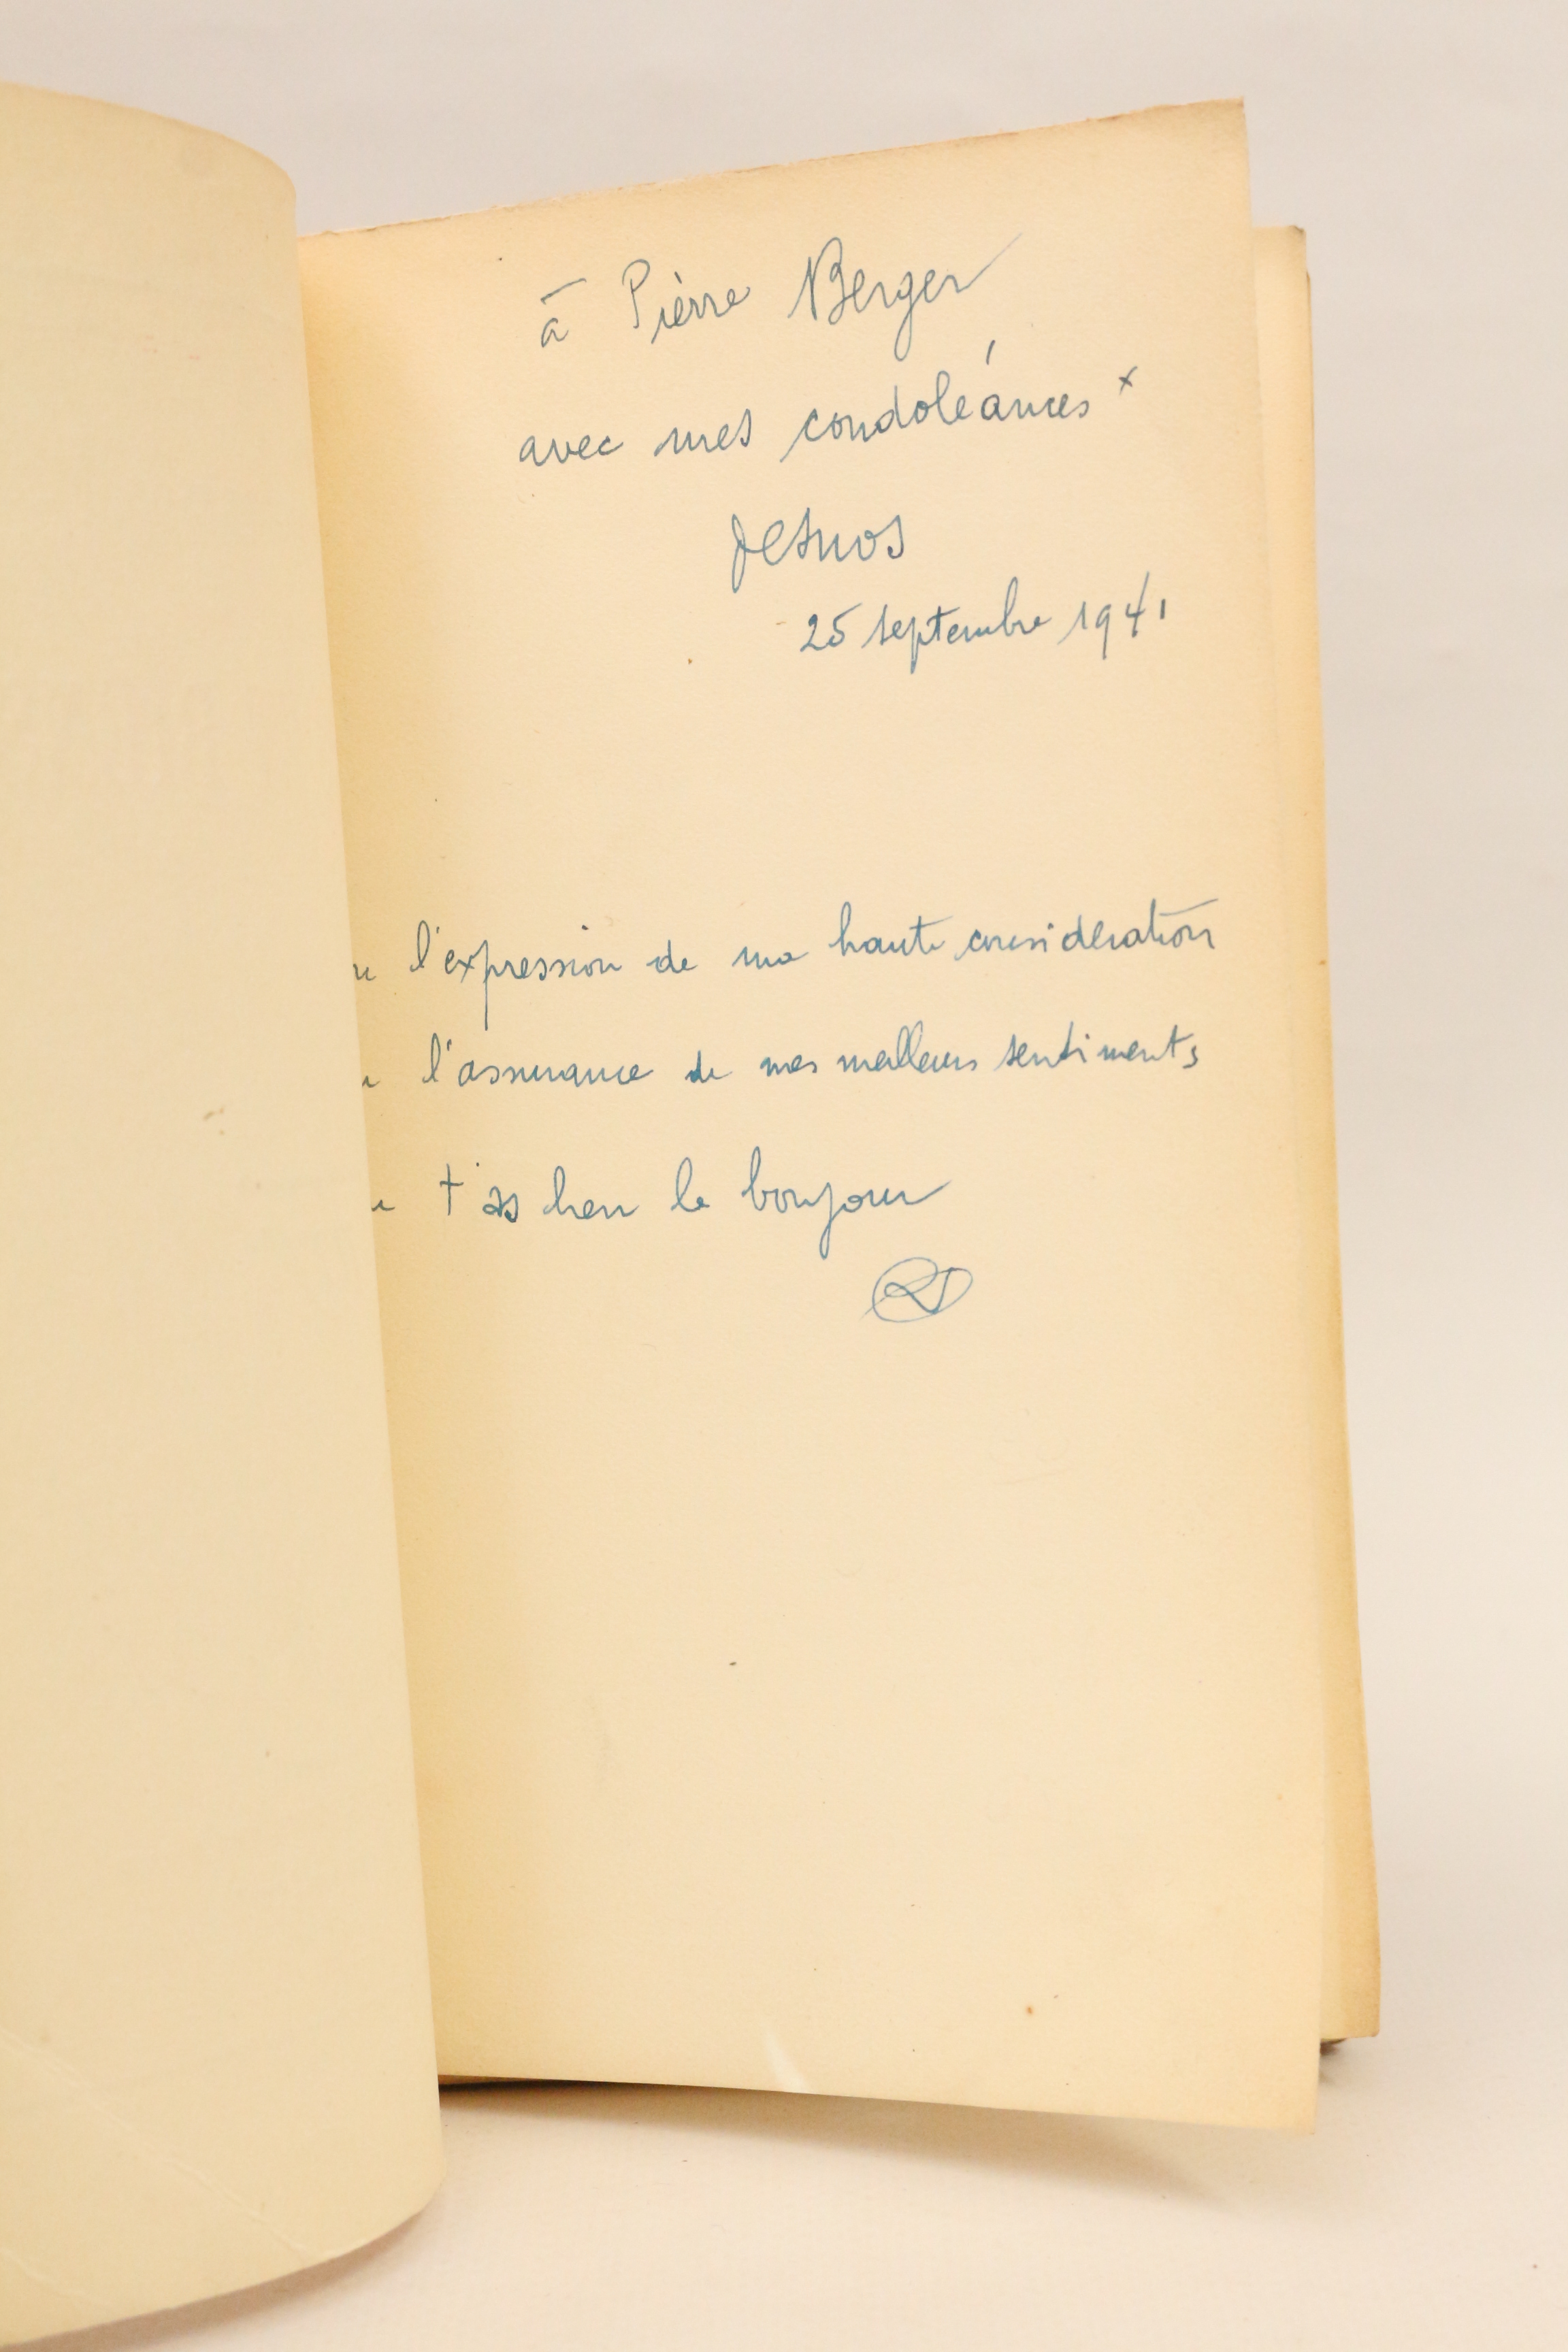 à Pierre Berger
avec mes condoléances x
Desnos
25 septembre 1941
l'expression de ma haute considération
l'assurance de mes meilleurs sentiments
t'as bien le bonjour
RD